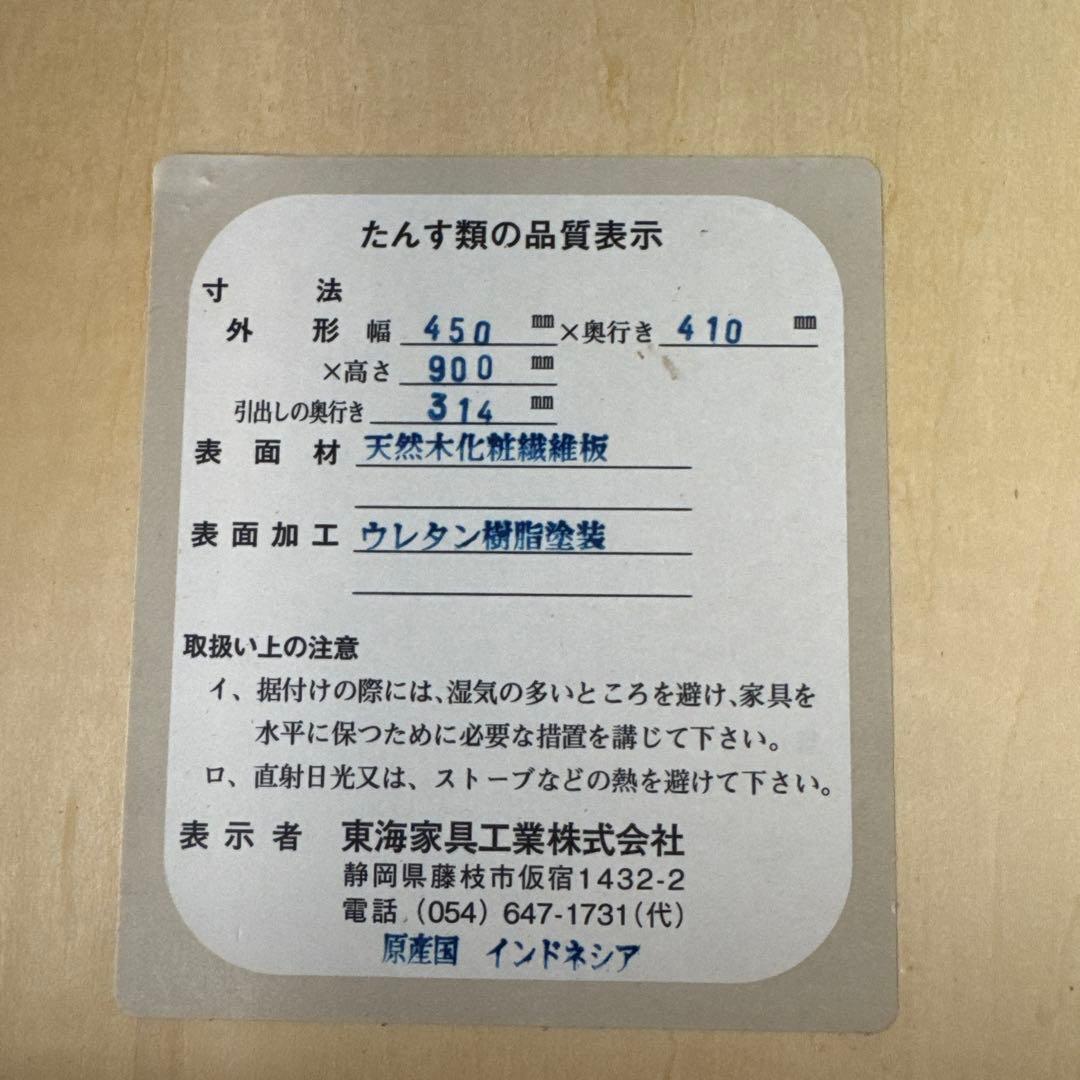 たんす類の品質表示
寸法
外形 幅 450 mm ×奥行き 410 mm
×高さ 900 mm
引出しの奥行き 314 mm
表面材 天然木化粧繊維板
表面加工 ウレタン樹脂塗装
取扱い上の注意
イ、据付けの際には、湿気の多いところを避け、家具を
水平に保つために必要な措置を講じて下さい。
ロ、直射日光又は、ストーブなどの熱を避けて下さい。
表示者 東海家具工業株式会社
静岡県藤枝市仮宿1432-2
電話 (054) 647-1731(代)
原産国 インドネシア